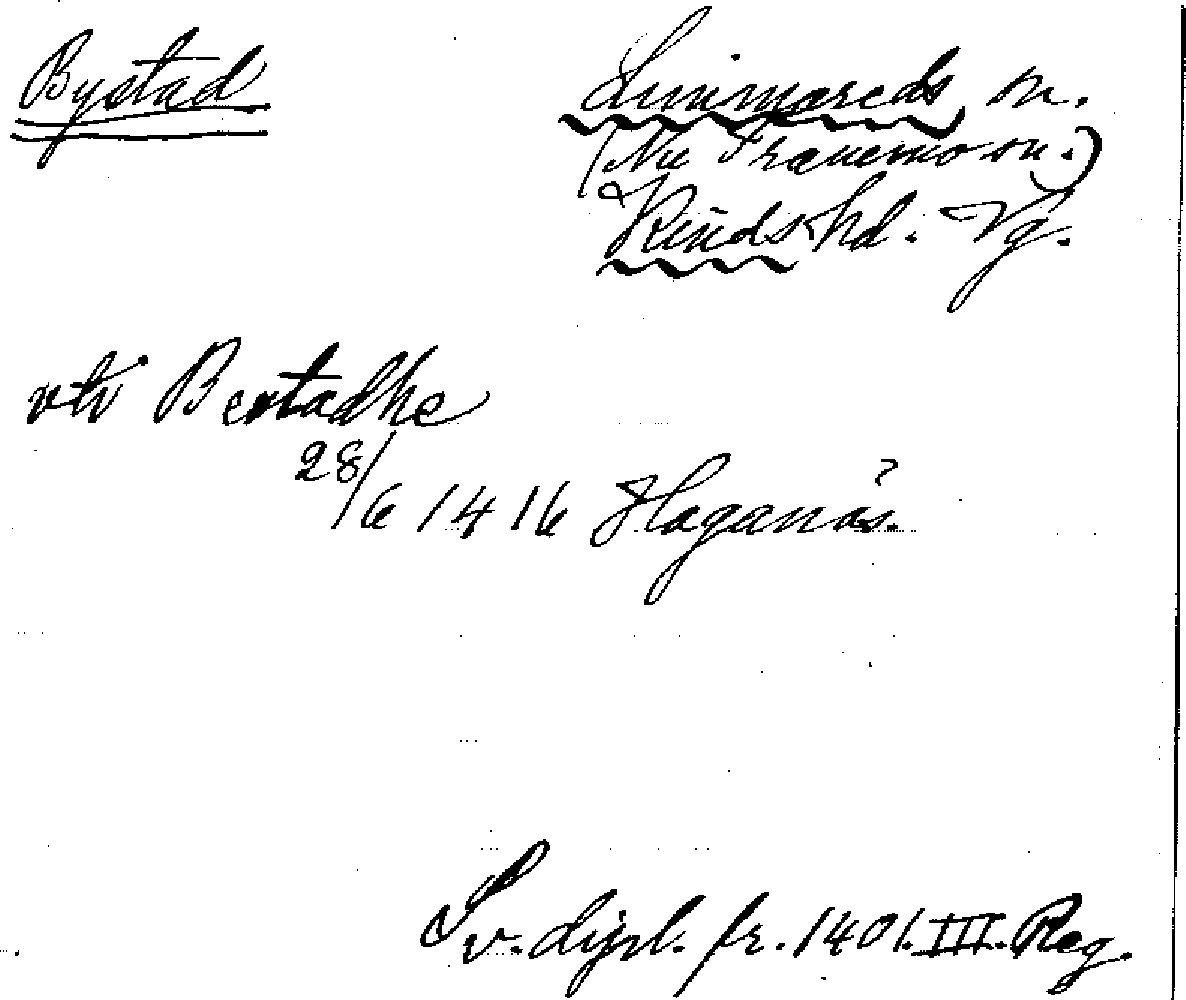 Bystad
Limmareds sn.
(Nu Tranemo sn.)
Kinds hd. Vg.
vtr Bestadhe
28/6 1416 Haganäs?
Sv. dipl. fr. 1401. III. Reg.